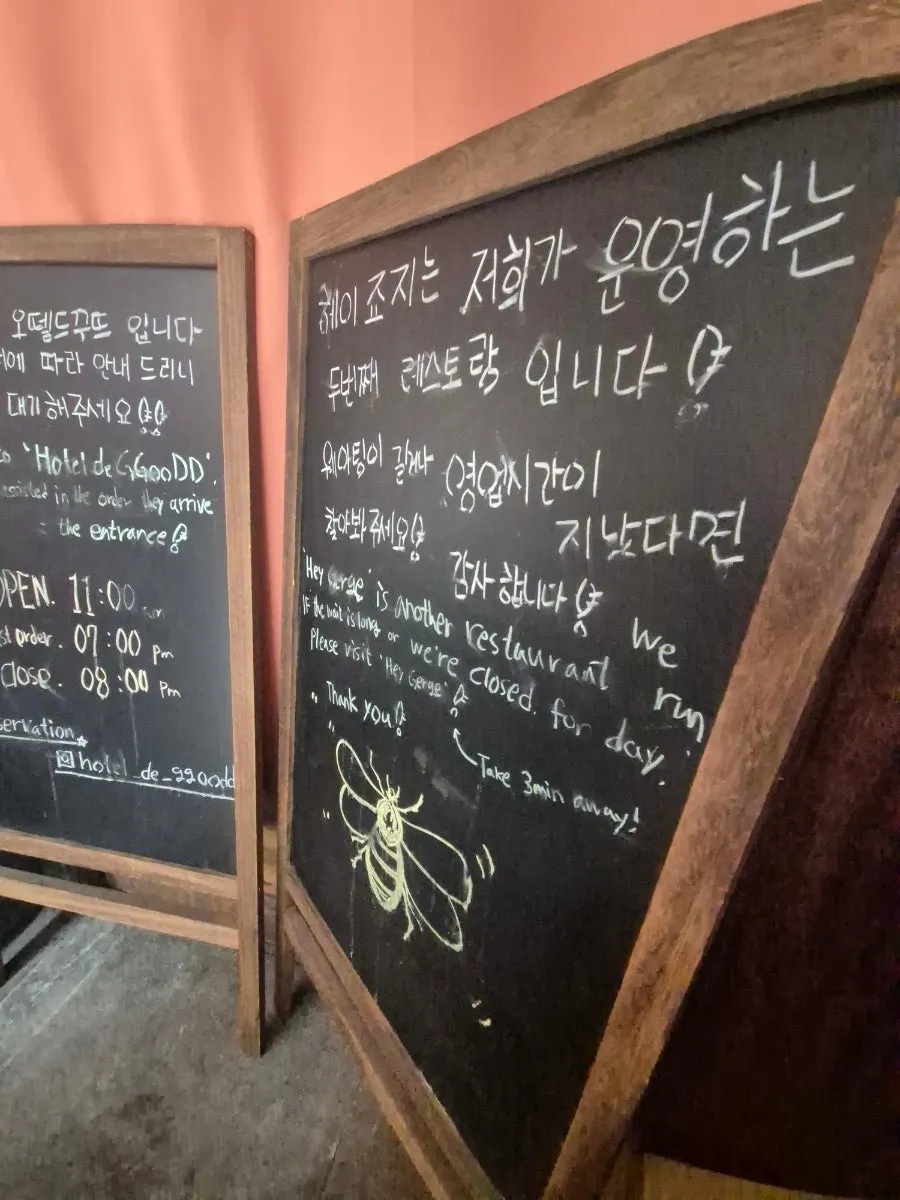 오뗄드꾸뜨 입니다
에 따라 안내 드리니
대기해주세요!!
'Hotel de GGooDD'.
in the order they arrive
the entrance!
OPEN. 11:00 am
st order. 07:00 pm
Close. 08:00 pm
servation
@hotel_de_ggoodd
헤이죠지는 저희가 운영하는
두번째 레스토랑 입니다!
웨이팅이 길거나 영업시간이
지났다면
찾아봐주세요!
감사합니다!
'Hey Gerge' is another restaurant we run.
If the wait is long or we're closed for day,
Please visit 'Hey Gerge'!
Thank you!
Take 3min away!